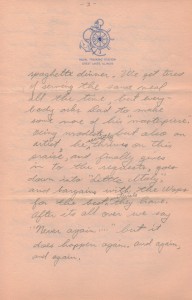 - 2 -
NAVAL TRAINING STATION
GREAT LAKES, ILLINOIS
spaghetti dinner. We got tired
of seeing the same meal
all the time, but every-
body who had to make
some more of his masterpiece.
Being modest, but also an
artist, he on this
praise, and finally gives
in to the requests, goes
down into "Little Italy"
and bargains with the Wops
for the best they have.
After its all over we say
"Never again..." but it
does happen again, and again,
and again.